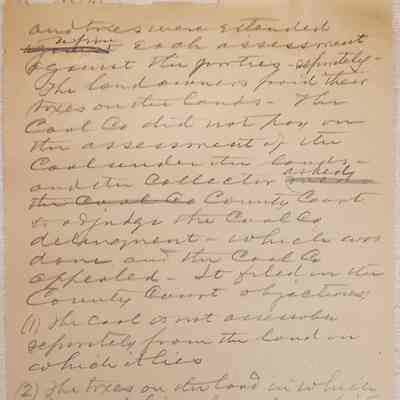 and taxes were extended
upon each assessment
against the parties - seperately -
The land owners paid their
taxes on the lands - The
Coal Co did not pay on
the assessment of the
Coal under the lands -
and the Collector asked
the Coal Co County Court
to adjudge the Coal Co
delinquent - which was
done and the Coal Co
appealed - It filed in the
County Court objections
(1) The coal is not assessable
seperately from the land in
which it lies
(2) The taxes on the land in which